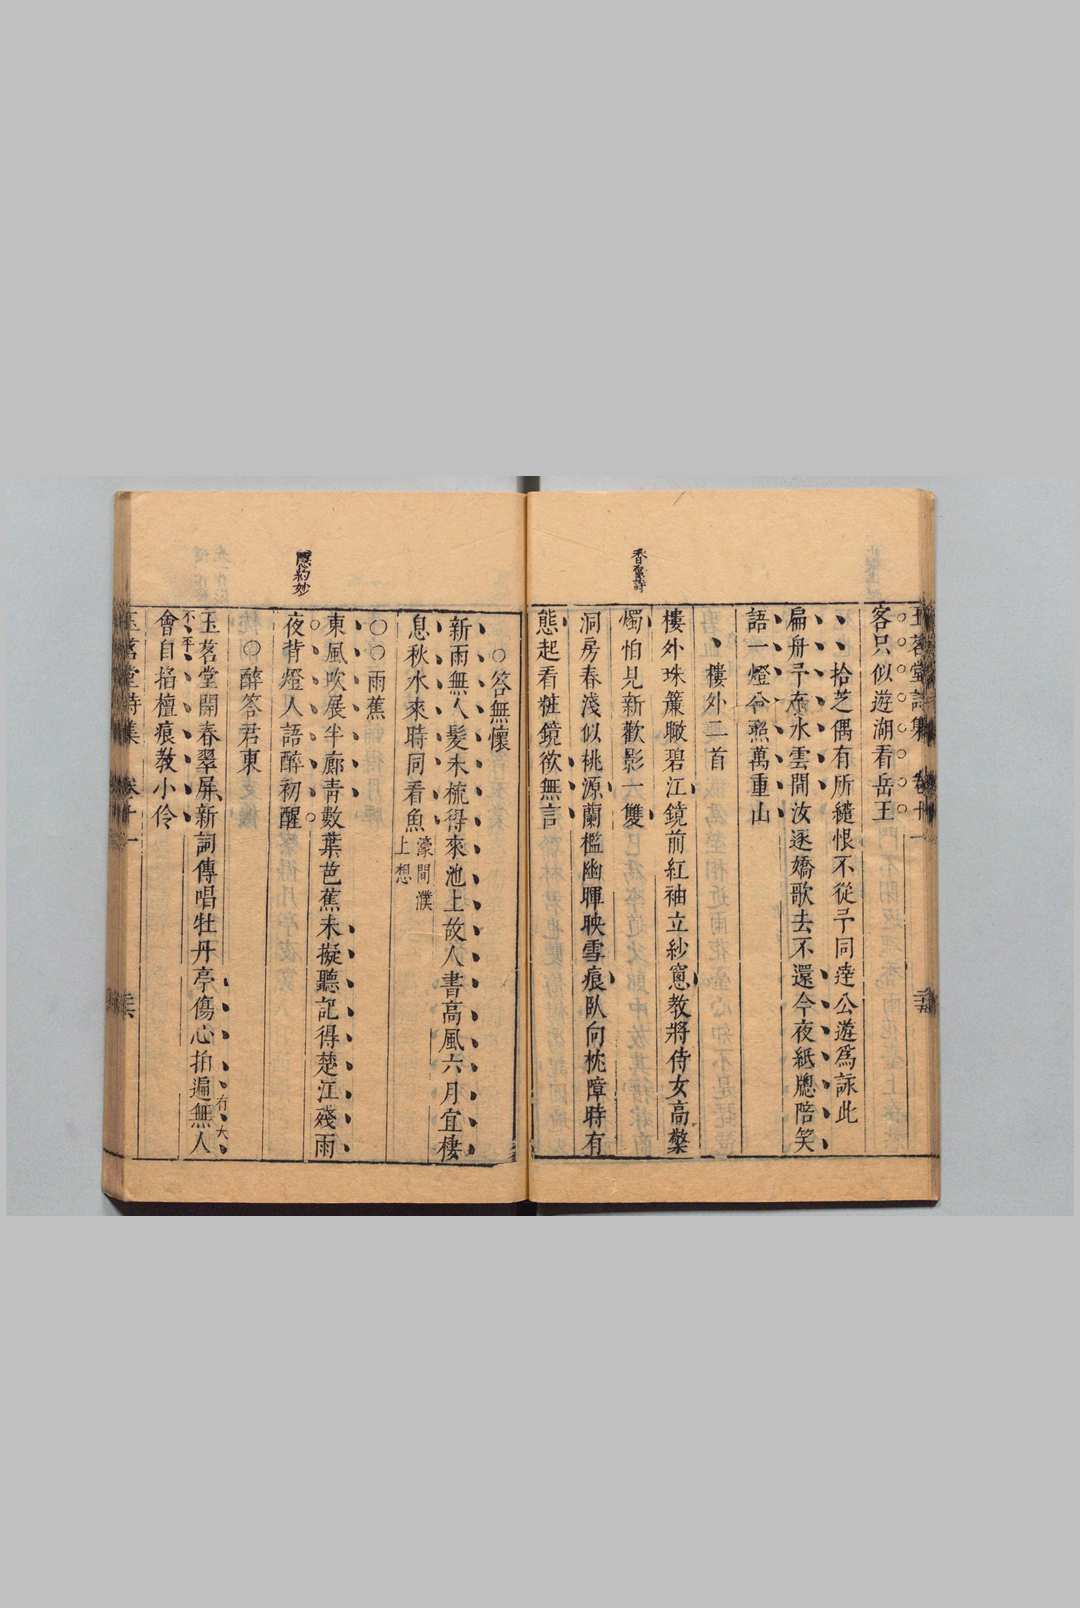 玉茗堂詩集 卷十一
客只似遊湖看岳王
拾芝偶有所繾恨不從予同達公遊爲詠此
扁舟予在水雲間汝逐嬌歌去不還今夜紙牕陪笑
語一燈分照萬重山
樓外二首
樓外珠簾瞰碧江鏡前紅袖立紗窻教將侍女高擎
燭怕見新歡影六雙
洞房春淺似桃源蘭檻幽暉映雪痕臥向枕障時有
態起看粧鏡欲無言
香奩詩
答無懷
新雨無人髮未梳得來池上故人書高風六月宜棲
息秋水來時同看魚
濠間濮
上想
雨蕉
東風吹展半廊青數葉芭蕉未擬聽記得楚江殘雨
夜背燈人語醉初醒
隱約妙
醉答君東
玉茗堂開春翠屏新詞傳唱牡丹亭傷心拍遍無人
會自掐檀痕教小伶
有大
不平
玉茗堂詩集 卷十一 二六